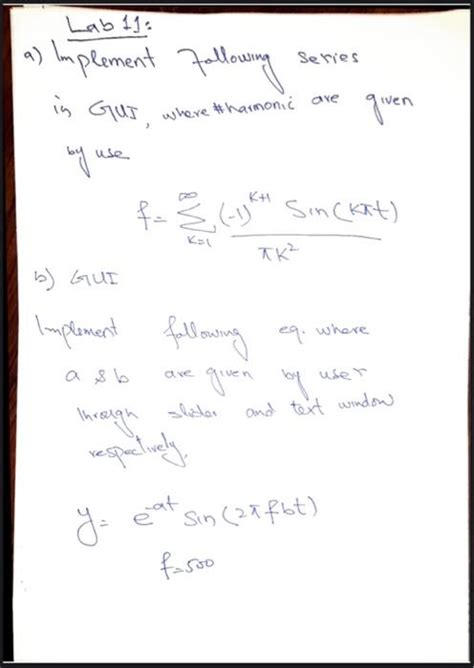 Lab 11:
a) Implement following series
in GUI, where #harmonic are given
by use
f = ∞ ∑ K=1 (-1)^K+1 Sin(Kπt) / πK²
b) GUI
Implement following eq. where
a & b are given by user
through slider and text window
respectively.
y = e^-at Sin(2πfbt)
f=500